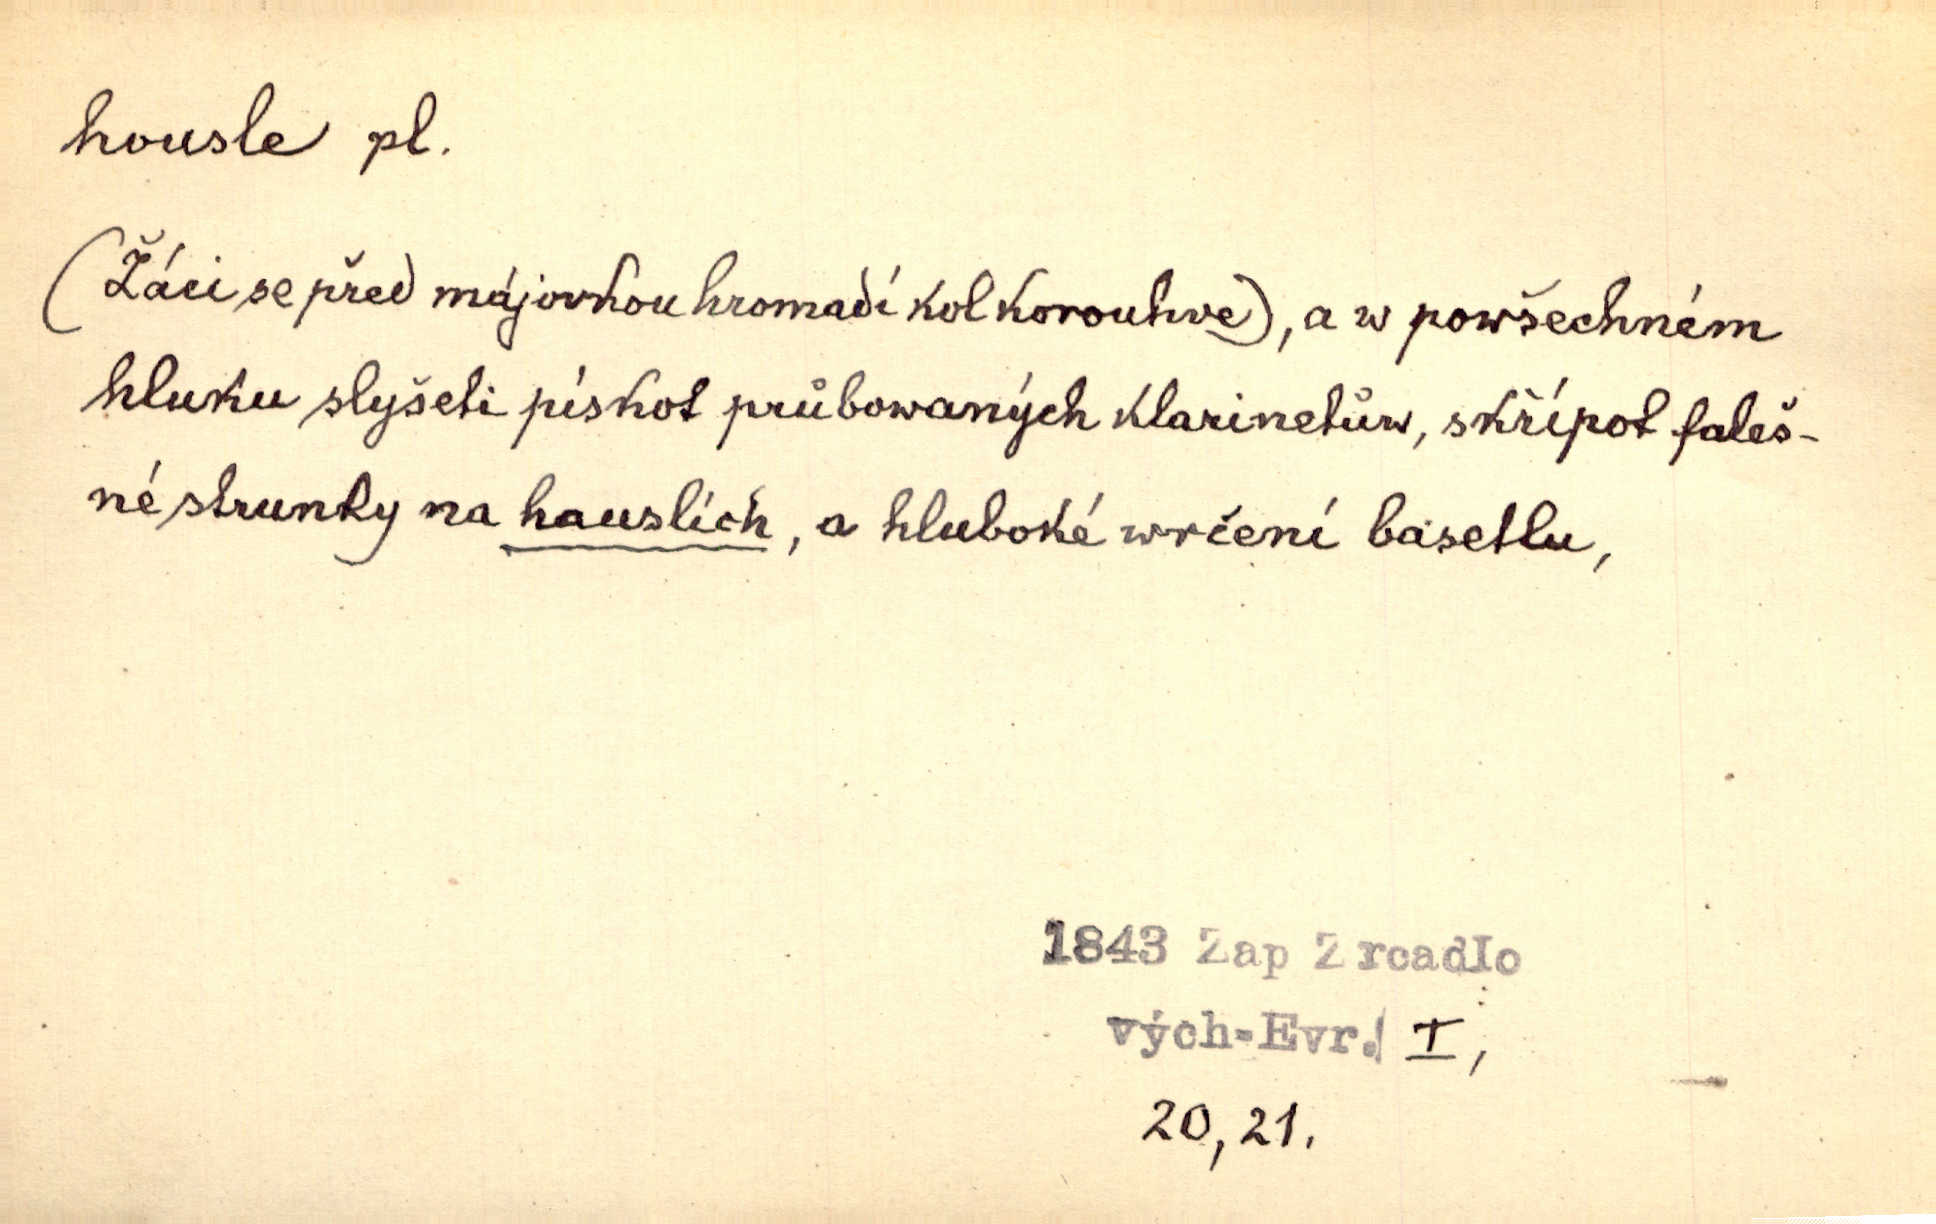 housle pl.
(Žáci se před májovkou hromadí kol korouhve), a w powšechném
hluku slyšeti pískot průbowaných klarinetůw, skřípot faleš-
né strunky na hauslích, a hluboké wrčení basetlu,
1843 Zap Zrcadlo
vých-Evr. I,
20, 21.